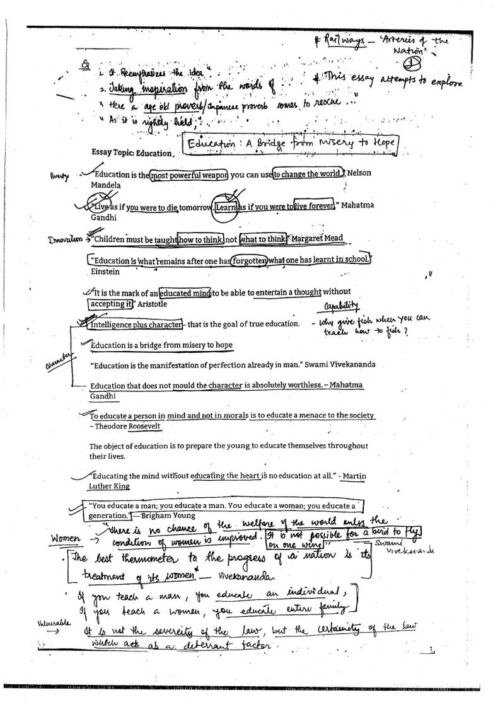 # Railways — 'Arteries of the
Nation'
1
1. It Reemphasizes the idea"
2. Taking inspiration from the words of
# This essay attempts to explore
" Here a age old proverb/Japanese proverb comes to rescue ..."
" As it is rightly held,"
Education : A Bridge from Misery to Hope
Essay Topic: Education.
"Education is the most powerful weapon you can use to change the world." Nelson
Mandela
"Live as if you were to die tomorrow. Learn as if you were to live forever." Mahatma
Gandhi
Innovation → "Children must be taught how to think, not what to think." Margaret Mead
"Education is what remains after one has forgotten what one has learnt in school."
Einstein
"It is the mark of an educated mind to be able to entertain a thought without
accepting it" Aristotle
Capability
Intelligence plus character - that is the goal of true education.
- Why give fish when you can
teach how to fish?
Education is a bridge from misery to hope
Character
"Education is the manifestation of perfection already in man." Swami Vivekananda
Education that does not mould the character is absolutely worthless. – Mahatma
Gandhi
To educate a person in mind and not in morals is to educate a menace to the society
– Theodore Roosevelt
The object of education is to prepare the young to educate themselves throughout
their lives.
"Educating the mind without educating the heart is no education at all." - Martin
Luther King
"You educate a man; you educate a man. You educate a woman; you educate a
generation." — Brigham Young
Women → "There is no chance of the welfare of the world unless the
condition of women is improved. It is not possible for a bird to fly
on one wing"
Swami
Vivekanada
The best thermometer to the progress of a nation is its
treatment of its women" — Vivekananda.
If you teach a man, you educate an individual,
If you teach a women, you educate entire family
Vulnerable
→ It is not the severity of the law, but the certainity of the law
which act as a deterrant factor.